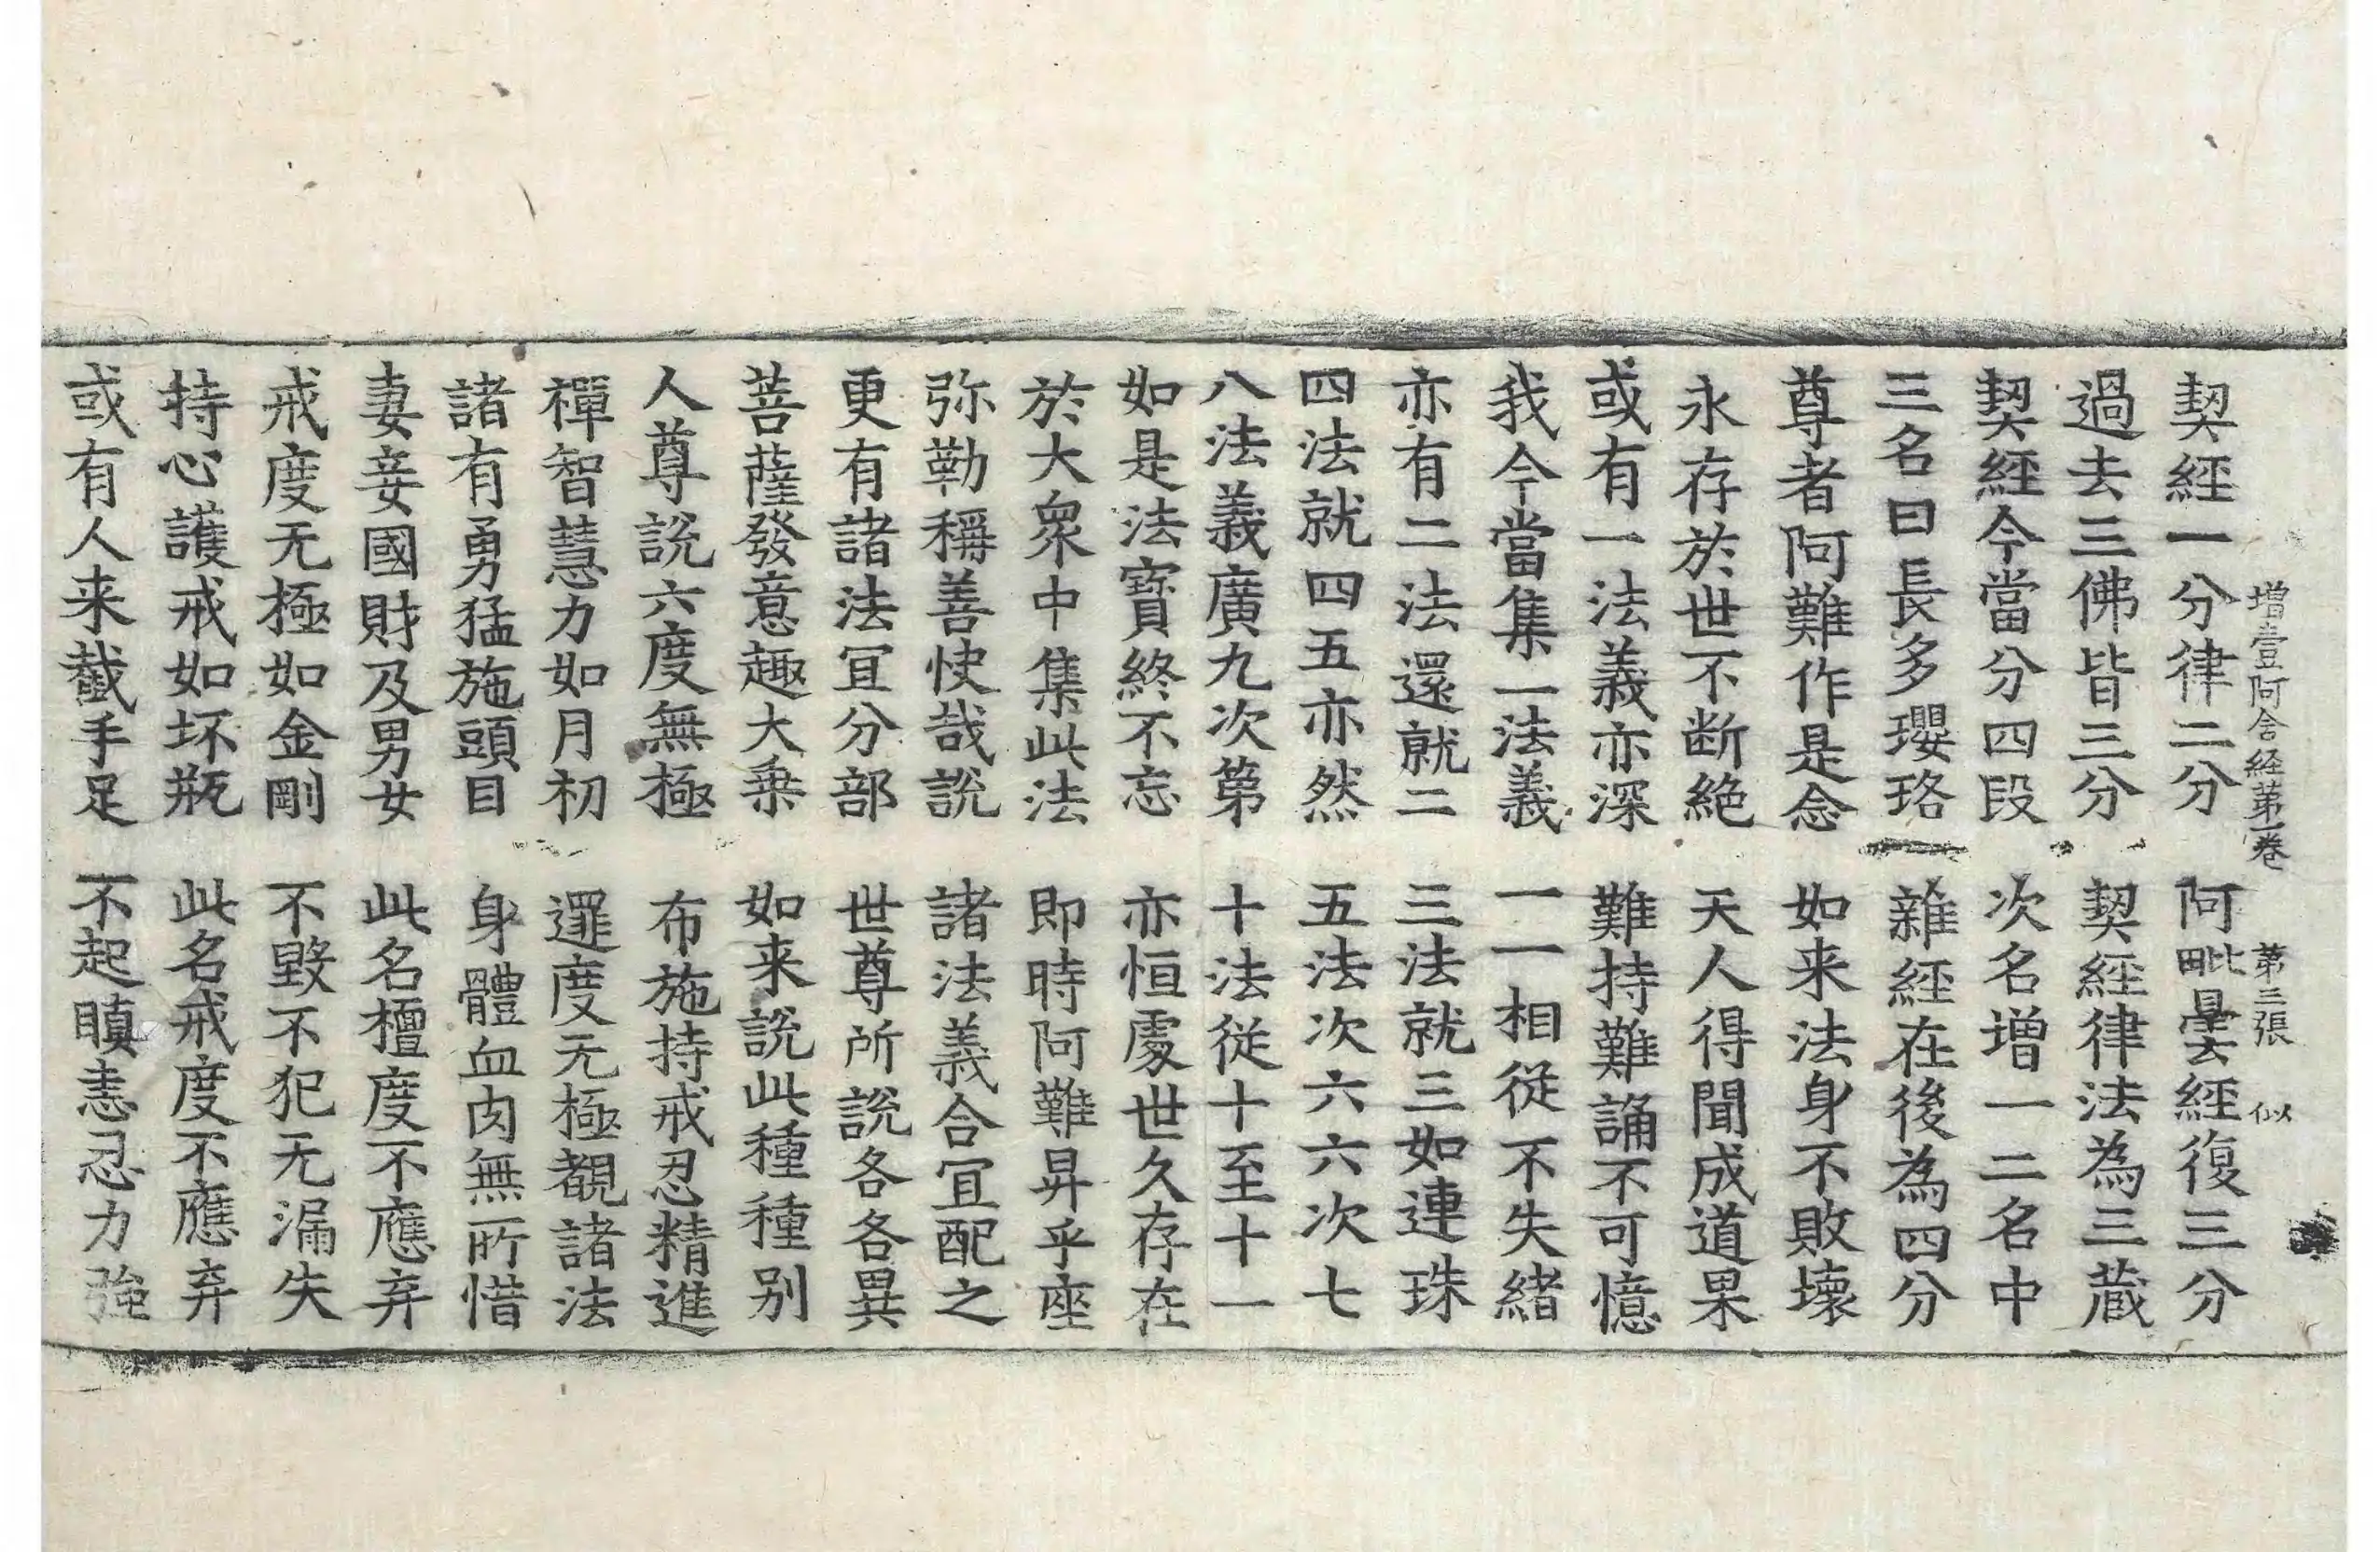 增壹阿含経第一卷 第三張 似
契經一分律二分 阿毗曇經復三分
過去三佛皆三分 契經律法為三蔵
契經今當分四段 次名增一二名中
三名曰長多瓔珞 雜經在後為四分
尊者阿難作是念 如来法身不敗壞
永存於世不断絶 天人得聞成道果
或有一法義亦深 難持難誦不可憶
我今當集一法義 一一相從不失緒
亦有二法還就二 三法就三如連珠
四法就四五亦然 五法次六六次七
八法義廣九次第 十法從十至十一
如是法寶終不忘 亦恒處世久存在
於大衆中集此法 即時阿難昇乎座
弥勒稱善快哉說 諸法義合冝配之
更有諸法冝分部 世尊所說各各異
菩薩發意趣大乗 如来說此種種别
人尊說六度無極 布施持戒忍精進
禪智慧力如月初 邏度无極覩諸法
諸有勇猛施頭目 身體血肉無所惜
妻妾國財及男女 此名檀度不應弃
戒度无極如金剛 不毀不犯无漏失
持心護戒如坏瓶 此名戒度不應弃
或有人来截手足 不起瞋恚忍力強